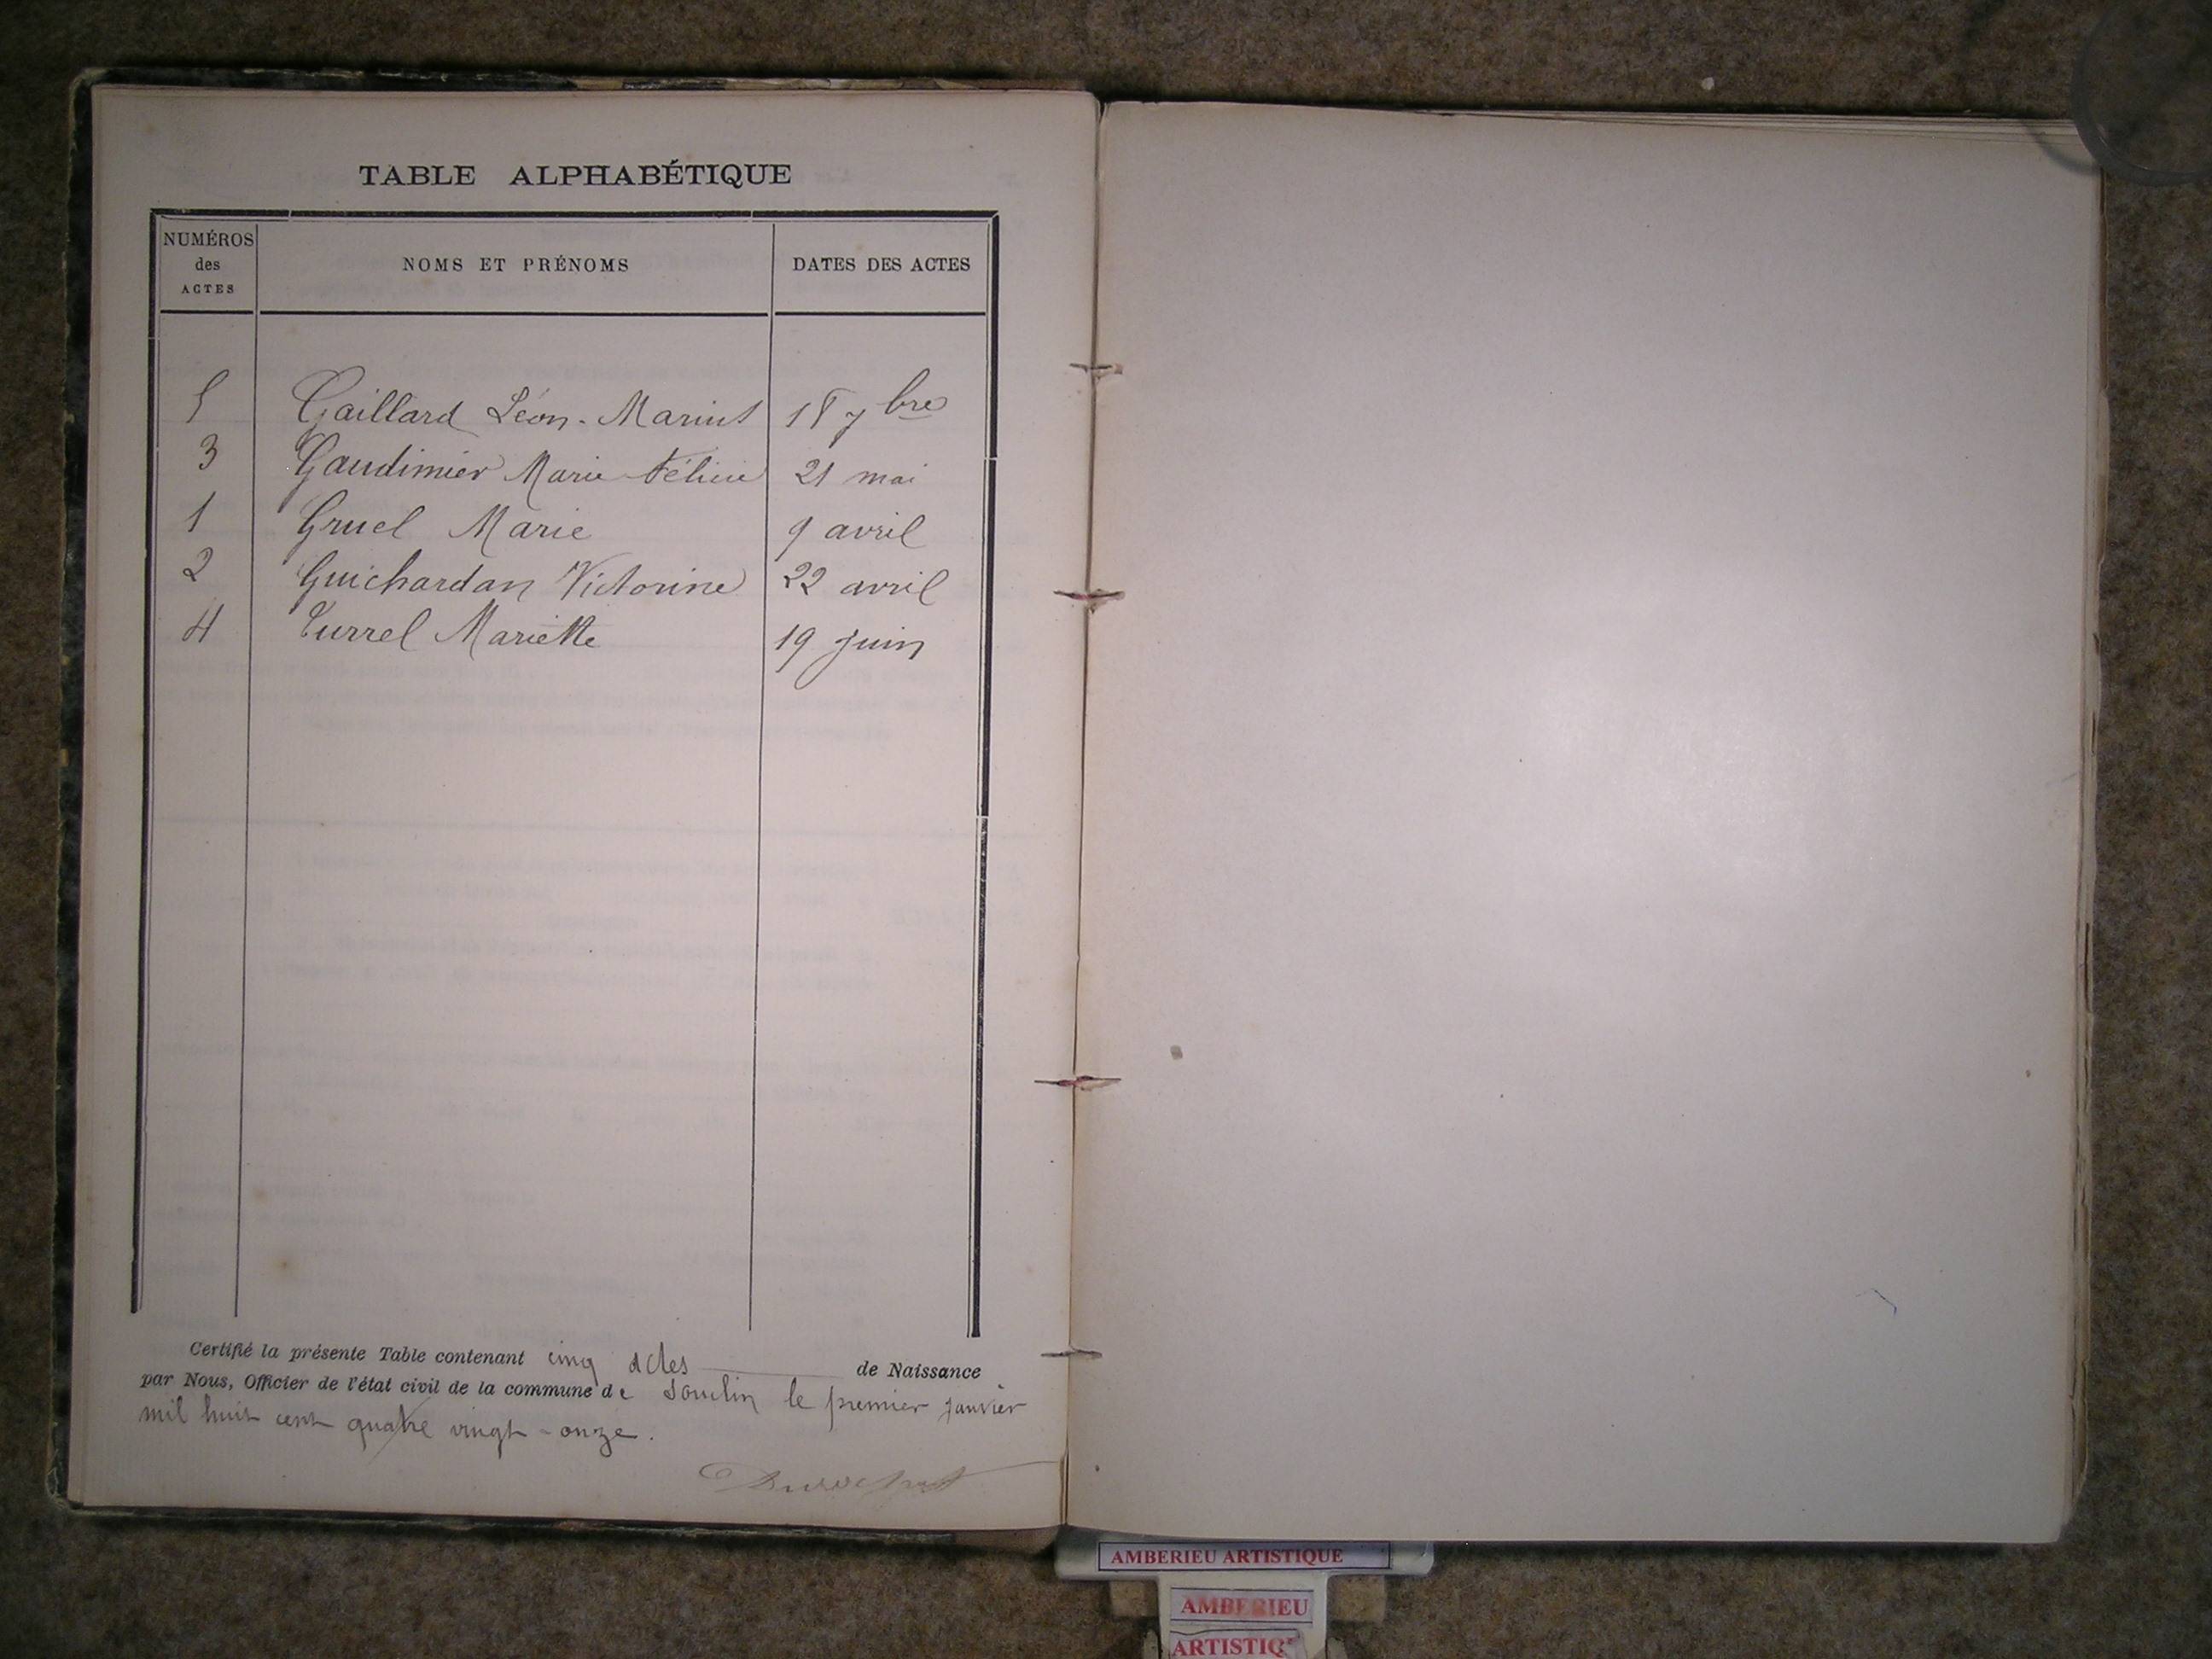 TABLE ALPHABÉTIQUE
NUMÉROS
des
ACTES
NOMS ET PRÉNOMS
DATES DES ACTES
5 Gaillard Léon-Marius 15 7bre
3 Gaudimier Marie-Félicie 21 mai
1 Gruel Marie 9 avril
2 Guichardan Victorine 22 avril
4 Turrel Mariette 19 juin
Certifié la présente Table contenant cinq actes de Naissance
par Nous, Officier de l'état civil de la commune de Souclin le premier janvier
mil huit cent quatre vingt-onze.
AMBERIEU ARTISTIQUE
AMBERIEU
ARTISTIQ